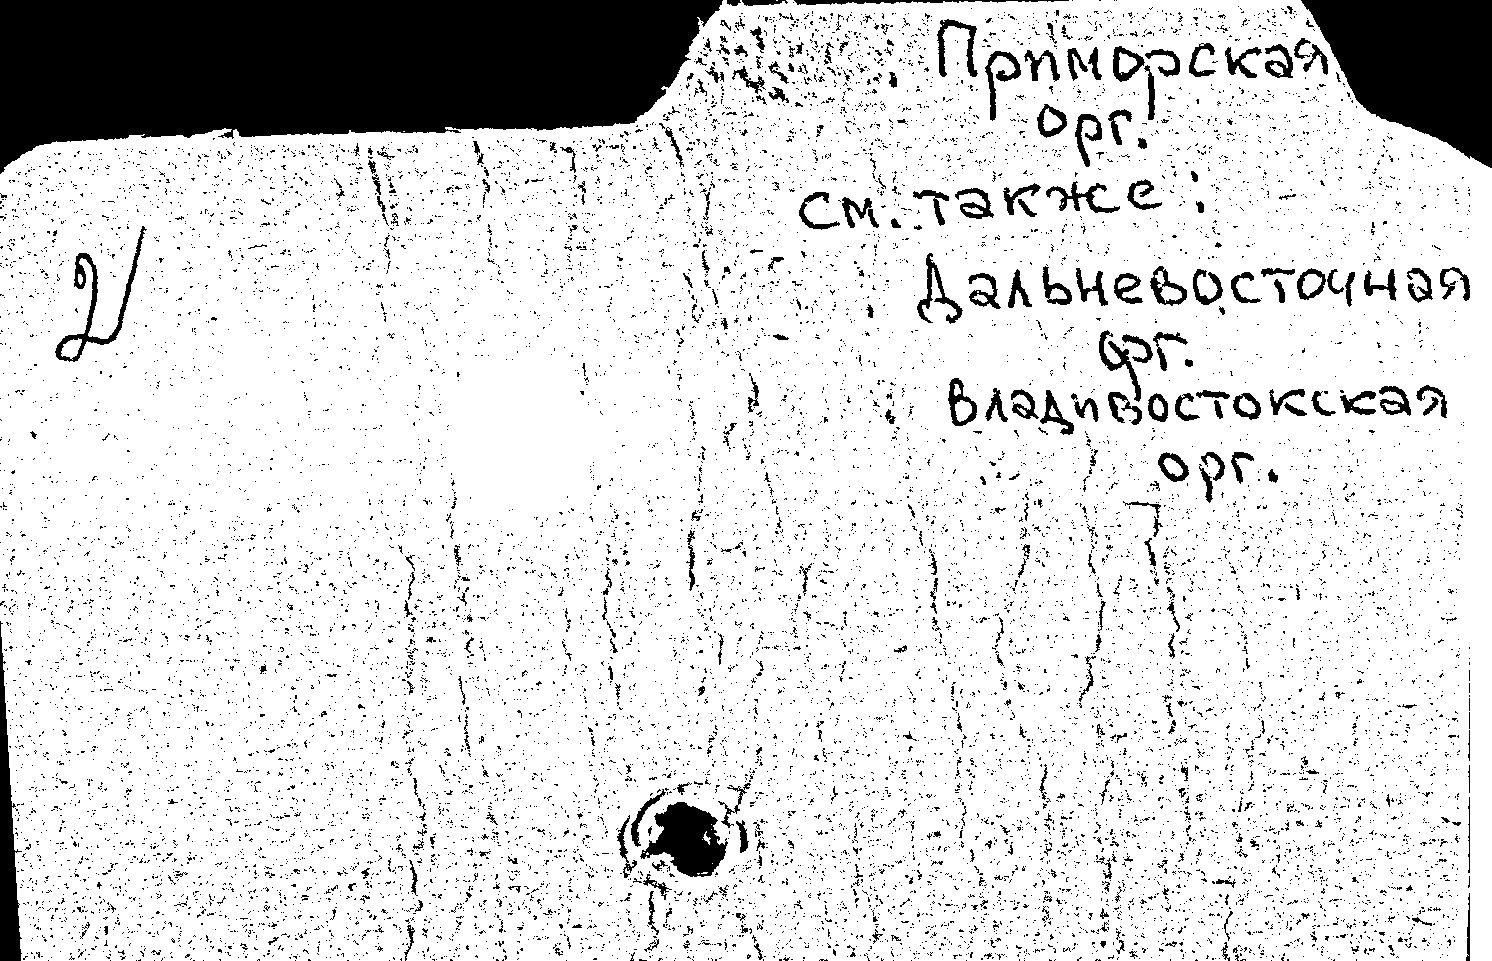 Приморская
орг.
см. также:
Дальневосточная
орг.
Владивостокская
орг.